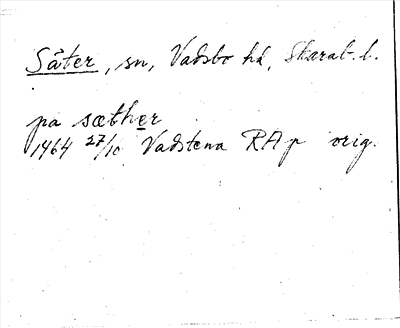 Säter, sn, Vadsbo hd, Skarab. l.
pa sæther
1464 27/10 Vadstena RAp orig.